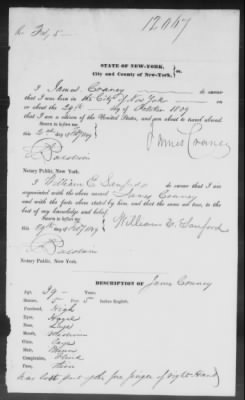 12047
STATE OF NEW-YORK,
City and County of New-York, ss.
I James Cranny do swear
that I was born in the City of New York on
or about the 29th day of October 1829
that I am a citizen of the United States, and am about to travel abroad.
Sworn to before me
this day
James Cranny
Notary Public, New York.
I William E Sanford do swear that I am
acquainted with the above named James Cranny
and with the facts above stated by him, and that the same are true, to the
best of my knowledge and belief.
Sworn to before me
this day
William E. Sanford
Notary Public, New York.
DESCRIPTION OF James Cranny
Age, 39 Years
Stature, 5 Feet 5 Inches English.
Forehead, High
Eyes, Hazel
Nose, Large
Mouth, Medium
Chin,
Hair, Brown
Complexion,
Face, Thin
has lost part of the fore finger of right Hand